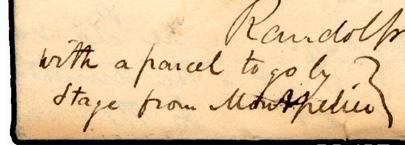 Randolph
with a parcel to go by
Stage from Montpelier